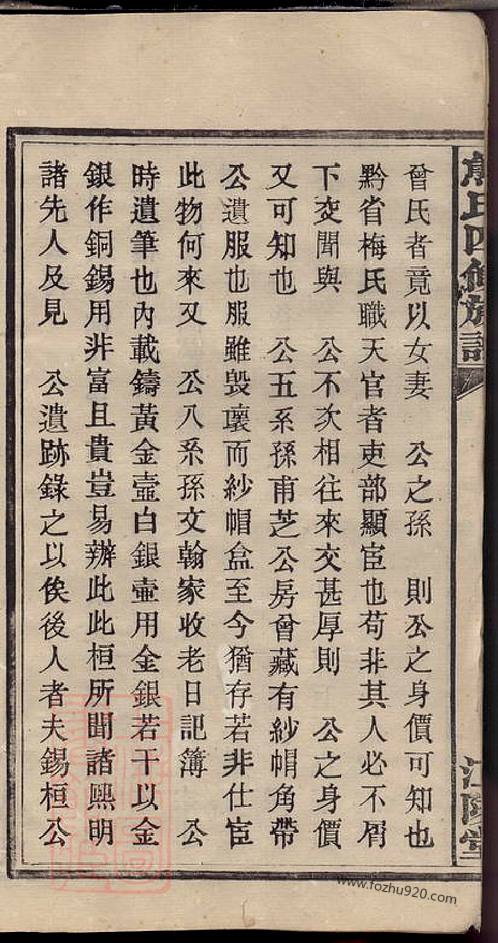 曾氏者竟以女妻　公之孫　則公之身價可知也
黔省梅氏職天官者吏部顯宦也苟非其人必不屑
下交聞與　公不次相往來交甚厚則　公之身價
又可知也　公五系孫甫芝公房曾藏有紗帽角帶
公遺服也服雖毀壞而紗帽盒至今猶存若非仕宦
此物何來又　公八系孫文翰家收老日記簿　公
時遺筆也內載鑄黃金壺白銀壷用金銀若干以金
銀作銅錫用非富且貴豈易辦此此桓所聞諸熙明
諸先人及見　公遺跡錄之以俟後人者夫錫桓公
氏四修族譜
江陵堂
www.fozhu920.com